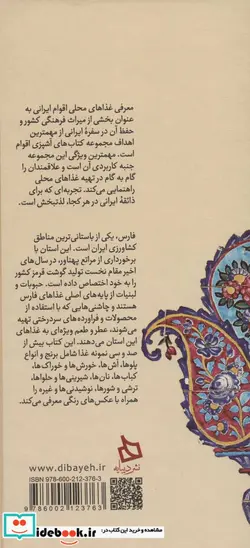 معرفی غذاهای محلی اقوام ایرانی به
عنوان بخشی از میراث فرهنگی کشور و
حفظ آن در سفرهٔ ایرانی از مهمترین
اهداف مجموعه کتاب‌های آشپزی اقوام
است. مهمترین ویژگی این مجموعه
جنبه کاربردی آن است و علاقمندان را
گام به گام در تهیه غذاهای محلی
راهنمایی می‌کند. تجربه‌ای که برای
ذائقهٔ ایرانی در هر کجا، لذتبخش است.
فارس، یکی از باستانی‌ترین مناطق
کشاورزی ایران است. این استان با
برخورداری از مراتع پهناور، در سال‌های
اخیر مقام نخست تولید گوشت قرمز کشور
را به خود اختصاص داده است. حبوبات و
لبنیات از پایه‌های اصلی غذاهای فارس
هستند و چاشنی‌هایی که با استفاده از
محصولات و فرآورده‌های سردرختی تهیه
می‌شوند، عطر و طعم ویژه‌ای به غذاهای
این استان می‌دهند. این کتاب بیش از
صد و سی نمونه غذا شامل برنج و انواع
پلوها، آش‌ها، خورش‌ها و خوراک‌ها،
کباب‌ها، نان‌ها، شیرینی‌ها و حلواها،
ترشی و شورها، نوشیدنی‌ها و غیره را
همراه با عکس‌های رنگی معرفی می‌کند.
نشر دیبایه
www.dibayeh.ir
ISBN: 978-600-212-376-3
9 786002 123763
مشاهده و خرید این کتاب در:
iranidebook.ir